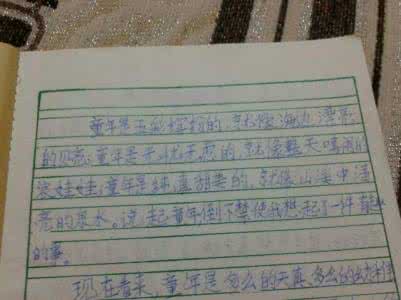 童年是五彩缤纷的,就像海边漂亮
的贝壳;童年是无忧无虑的,就像整天嘻闹的
淡娃娃;童年是纯真甜美的,就像山溪中清
亮的泉水。说起童年,倒不禁使我想起了一件有趣
的事。
现在看来,童年是多么的天真,多么的幼稚